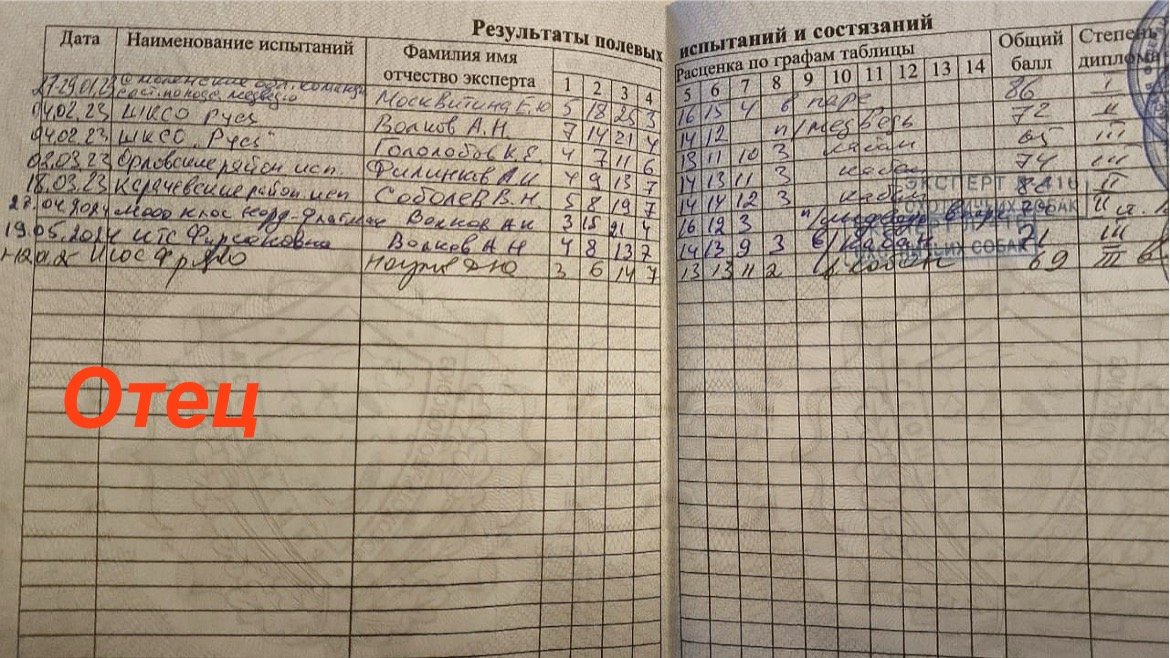 Результаты полевых испытаний и состязаний
Дата Наименование испытаний Фамилия имя отчество эксперта 1 2 3 4 Расценка по графам таблицы 5 6 7 8 9 10 11 12 13 14 Общий балл Степень диплома
Москвитина Е.Ю 5 18 25 3 16 15 4 в паре 86 I
04.02.23 ШКСО Русь Волков А.Н. 7 14 21 4 14 12 п/медведь 72 II
04.02.23 ШКСО "Русь" Гололобов К.Е. 4 7 11 6 13 11 10 3 кабан 65 III
03.23 Орловские район исп. Филинков А.И 4 9 13 7 14 13 11 3 кабан 74 III
18.03.23 Карачевские район. исп Соболев В.Н. 5 8 19 7 14 14 12 3 кабан II
04.2024 Волков А.Н 3 15 21 4 16 12 3 II
19.05.2024 ИТС Фирсановка Волков А.Н 4 8 13 7 14 13 9 3 в/кабан 71 III
3 6 14 7 13 13 11 2 в/кабан 69 III
ЭКСПЕРТ
ОХОТНИЧЬИХ СОБАК
Отец